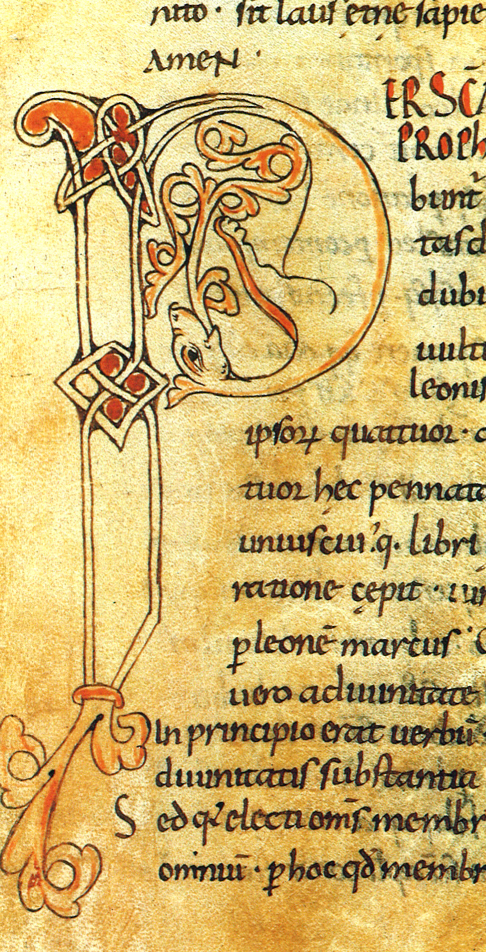 nito · sit laus et́ne sapie
AmeN ·
P ERSC̄A
PROPh
bunt
tas d
dubi
uult
leonis
ipsoꝝ quattuor · a
tuor hec pennata
uniuscui'q. libri
ratione cępit · un
ꝑ leonē marcus
uero ad diuinitate
In principio erat uerbū
diuinitatis substantia
Sed q̇ electionis membr
ominiū · ꝑ hoc qd̄ membr